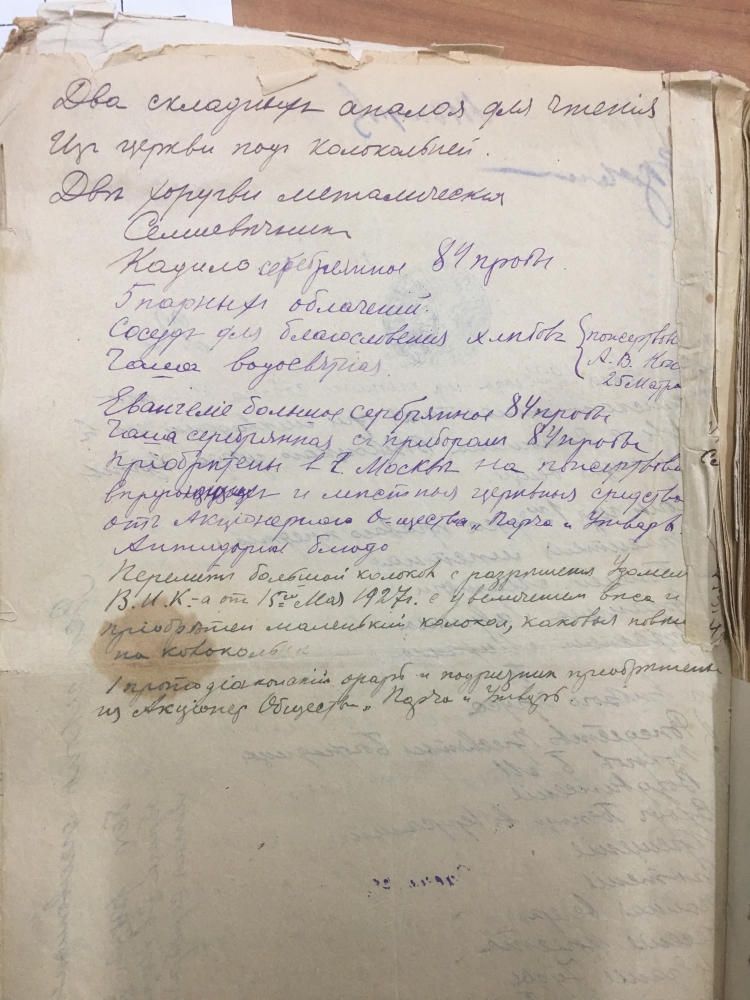 Два складныхъ аналоя для чтенія
Изъ церкви подъ колокольней.
Двѣ хоругви металическія
Семисвѣчникъ
Кадило серебрянное 84 пробы.
5 парныхъ облаченій.
Сосудъ для благословенія хлѣбовъ
пожертвов
Чаша водосвятная.
А. В. Кон
25 Марта
Евангеліе большое серебрянное 84 пробы
Чаша серебрянная съ приборомъ 84 пробы
пріобрѣтены въ г. Москвы на пожертвова
и мѣстныя церковныя средства
отъ Акціонернаго О-щества „Парча и Утварь".
Антидорное блюдо
Перелитъ большой колокол с разрѣшенія Удомел
В.И.К.-а от 15го Мая 1927 г. с увеличением вѣса и
пріобрѣтен маленькій колокол, каковыя
на колокольню
1 протодіаконскій орарь и подризник пріобрѣтены
из Акціонер Общества „Парча и Утварь"